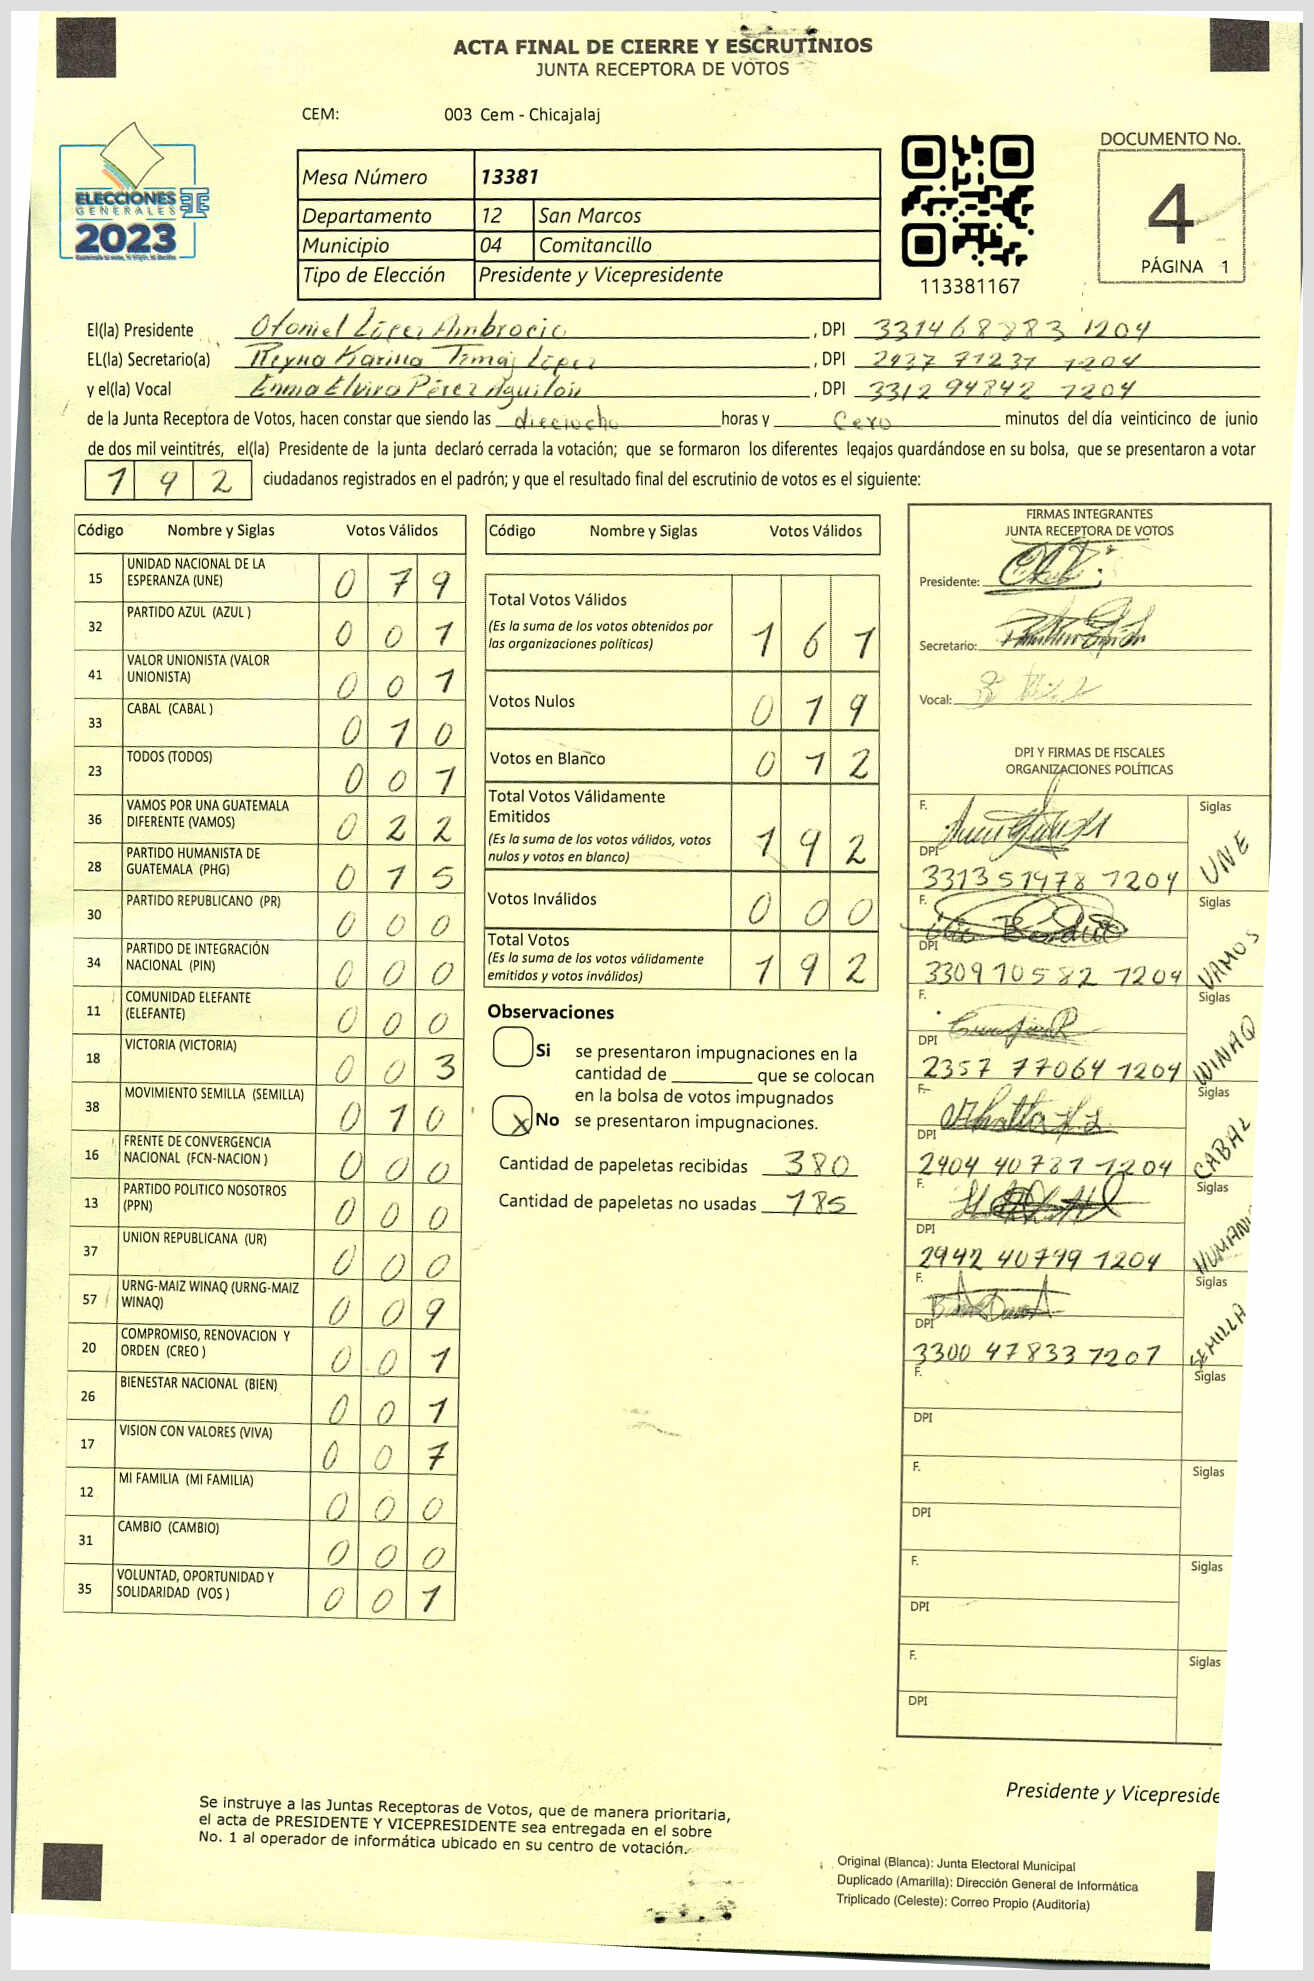 ACTA FINAL DE CIERRE Y ESCRUTINIOS
JUNTA RECEPTORA DE VOTOS
CEM: 003 Cem - Chicajalaj
ELECCIONES
GENERALES
2023
Mesa Número 13381
Departamento 12 San Marcos
Municipio 04 Comitancillo
Tipo de Elección Presidente y Vicepresidente
113381167
DOCUMENTO No.
4
PÁGINA 1
El(la) Presidente Otoniel López Ambrocio, DPI 331468883 1204
EL(la) Secretario(a) Reyna Karina Temaj López, DPI 2937 71237 1204
y el(la) Vocal Enma Elvira Pérez Aguilón, DPI 3312 94842 1204
de la Junta Receptora de Votos, hacen constar que siendo las dieciocho horas y Cero minutos del día veinticinco de junio
de dos mil veintitrés, el(la) Presidente de la junta declaró cerrada la votación; que se formaron los diferentes legajos guardándose en su bolsa, que se presentaron a votar
192 ciudadanos registrados en el padrón; y que el resultado final del escrutinio de votos es el siguiente:
Código Nombre y Siglas Votos Válidos
15 UNIDAD NACIONAL DE LA ESPERANZA (UNE) 0 7 9
32 PARTIDO AZUL (AZUL ) 0 0 1
41 VALOR UNIONISTA (VALOR UNIONISTA) 0 0 1
33 CABAL (CABAL ) 0 1 0
23 TODOS (TODOS) 0 0 1
36 VAMOS POR UNA GUATEMALA DIFERENTE (VAMOS) 0 2 2
28 PARTIDO HUMANISTA DE GUATEMALA (PHG) 0 1 5
30 PARTIDO REPUBLICANO (PR) 0 0 0
34 PARTIDO DE INTEGRACIÓN NACIONAL (PIN) 0 0 0
11 COMUNIDAD ELEFANTE (ELEFANTE) 0 0 0
18 VICTORIA (VICTORIA) 0 0 3
38 MOVIMIENTO SEMILLA (SEMILLA) 0 1 0
16 FRENTE DE CONVERGENCIA NACIONAL (FCN-NACION ) 0 0 0
13 PARTIDO POLITICO NOSOTROS (PPN) 0 0 0
37 UNION REPUBLICANA (UR) 0 0 0
57 URNG-MAIZ WINAQ (URNG-MAIZ WINAQ) 0 0 9
20 COMPROMISO, RENOVACION Y ORDEN (CREO ) 0 0 1
26 BIENESTAR NACIONAL (BIEN) 0 0 1
17 VISION CON VALORES (VIVA) 0 0 7
12 MI FAMILIA (MI FAMILIA) 0 0 0
31 CAMBIO (CAMBIO) 0 0 0
35 VOLUNTAD, OPORTUNIDAD Y SOLIDARIDAD (VOS ) 0 0 1
Código Nombre y Siglas Votos Válidos
Total Votos Válidos 1 6 1
(Es la suma de los votos obtenidos por
las organizaciones políticas)
Votos Nulos 0 1 9
Votos en Blanco 0 1 2
Total Votos Válidamente
Emitidos 1 9 2
(Es la suma de los votos válidos, votos
nulos y votos en blanco)
Votos Inválidos 0 0 0
Total Votos 1 9 2
(Es la suma de los votos válidamente
emitidos y votos inválidos)
Observaciones
Si se presentaron impugnaciones en la
cantidad de ________ que se colocan
en la bolsa de votos impugnados
x No se presentaron impugnaciones.
Cantidad de papeletas recibidas 380
Cantidad de papeletas no usadas 185
FIRMAS INTEGRANTES
JUNTA RECEPTORA DE VOTOS
Presidente:
Secretario:
Vocal:
DPI Y FIRMAS DE FISCALES
ORGANIZACIONES POLÍTICAS
F. Siglas UNE
DPI 3313 51978 1204
F. Siglas VAMOS
DPI 3309 10582 1204
F. Siglas WINAQ
DPI 2357 77064 1204
F. Siglas CABAL
DPI 2404 40781 1204
F. Siglas HUMANI
DPI 2942 40799 1204
F. Siglas SEMILLA
DPI 3300 47833 1201
F. Siglas
DPI
F. Siglas
DPI
F. Siglas
DPI
F. Siglas
DPI
Presidente y Vicepreside
Se instruye a las Juntas Receptoras de Votos, que de manera prioritaria,
el acta de PRESIDENTE Y VICEPRESIDENTE sea entregada en el sobre
No. 1 al operador de informática ubicado en su centro de votación.
Original (Blanca): Junta Electoral Municipal
Duplicado (Amarilla): Dirección General de Informática
Triplicado (Celeste): Correo Propio (Auditoria)